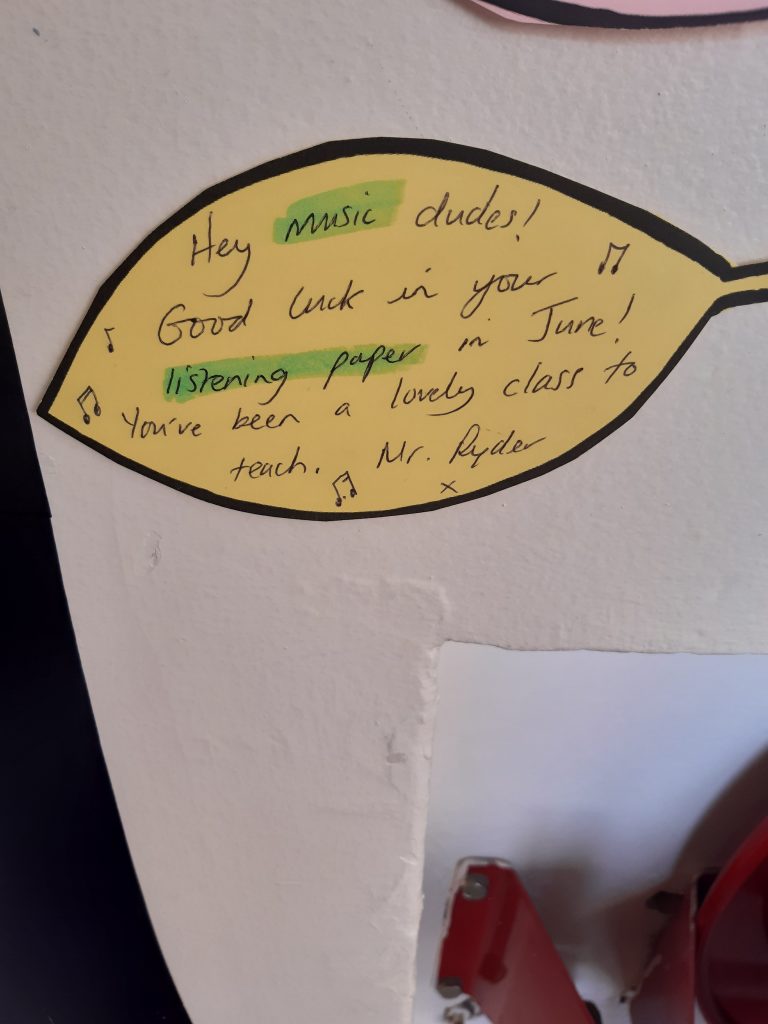 Hey music dudes!
Good luck in your
listening paper in June!
You've been a lovely class to
teach. Mr. Ryder
x